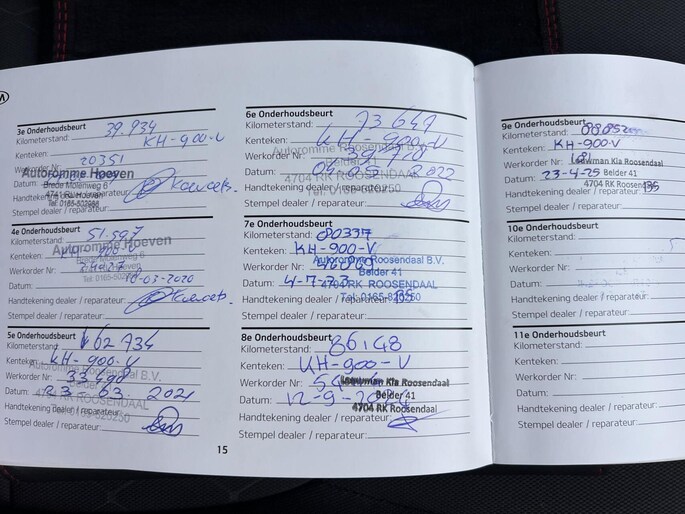 3e Onderhoudsbeurt
Kilometerstand: 39.934
Kenteken: KH-900-V
Werkorder Nr: 20351
Datum:
Autoromme Hoeven
Brede Molenweg 6
Handtekening dealer / reparateur:
Tel: 0165-502966
Stempel dealer / reparateur:
4e Onderhoudsbeurt
Kilometerstand: 51.597
Autoromme Hoeven
Kenteken: KH-900-V
Werkorder Nr:
Datum: 10-03-2020
Handtekening dealer / reparateur:
Stempel dealer / reparateur:
5e Onderhoudsbeurt
Kilometerstand: 62734
Kenteken: KH-900-V
Autoromme Roosendaal B.V.
Werkorder Nr:
Datum: 23 03 2021
4704 RK ROOSENDAAL
Handtekening dealer / reparateur:
Stempel dealer / reparateur:
15
6e Onderhoudsbeurt
Kilometerstand: 73641
Kenteken: KH-900-V
Werkorder Nr:
Belder 41
Datum: 2022
4704 RK ROOSENDAAL
Handtekening dealer / reparateur:
Stempel dealer / reparateur:
7e Onderhoudsbeurt
Kilometerstand: 80337
Kenteken: KH-900-V
Autoromme Roosendaal B.V.
Werkorder Nr:
Belder 41
Datum: 4-7-23
4704 RK ROOSENDAAL
Handtekening dealer / reparateur:
Tel: 0165-820250
Stempel dealer / reparateur:
8e Onderhoudsbeurt
Kilometerstand: 86148
Kenteken: KH-900-V
Werkorder Nr:
Louwman Kia Roosendaal
Belder 41
Datum: 12-9-
4704 RK Roosendaal
Handtekening dealer / reparateur:
Stempel dealer / reparateur:
9e Onderhoudsbeurt
Kilometerstand:
Kenteken: KH-900-V
Werkorder Nr:
Louwman Kia Roosendaal
Datum: 23-4-25
Belder 41
4704 RK Roosendaal
Handtekening dealer / reparateur:
Stempel dealer / reparateur:
10e Onderhoudsbeurt
Kilometerstand:
Kenteken:
Werkorder Nr:
Datum:
Handtekening dealer / reparateur:
Stempel dealer / reparateur:
11e Onderhoudsbeurt
Kilometerstand:
Kenteken:
Werkorder Nr:
Datum:
Handtekening dealer / reparateur:
Stempel dealer / reparateur: